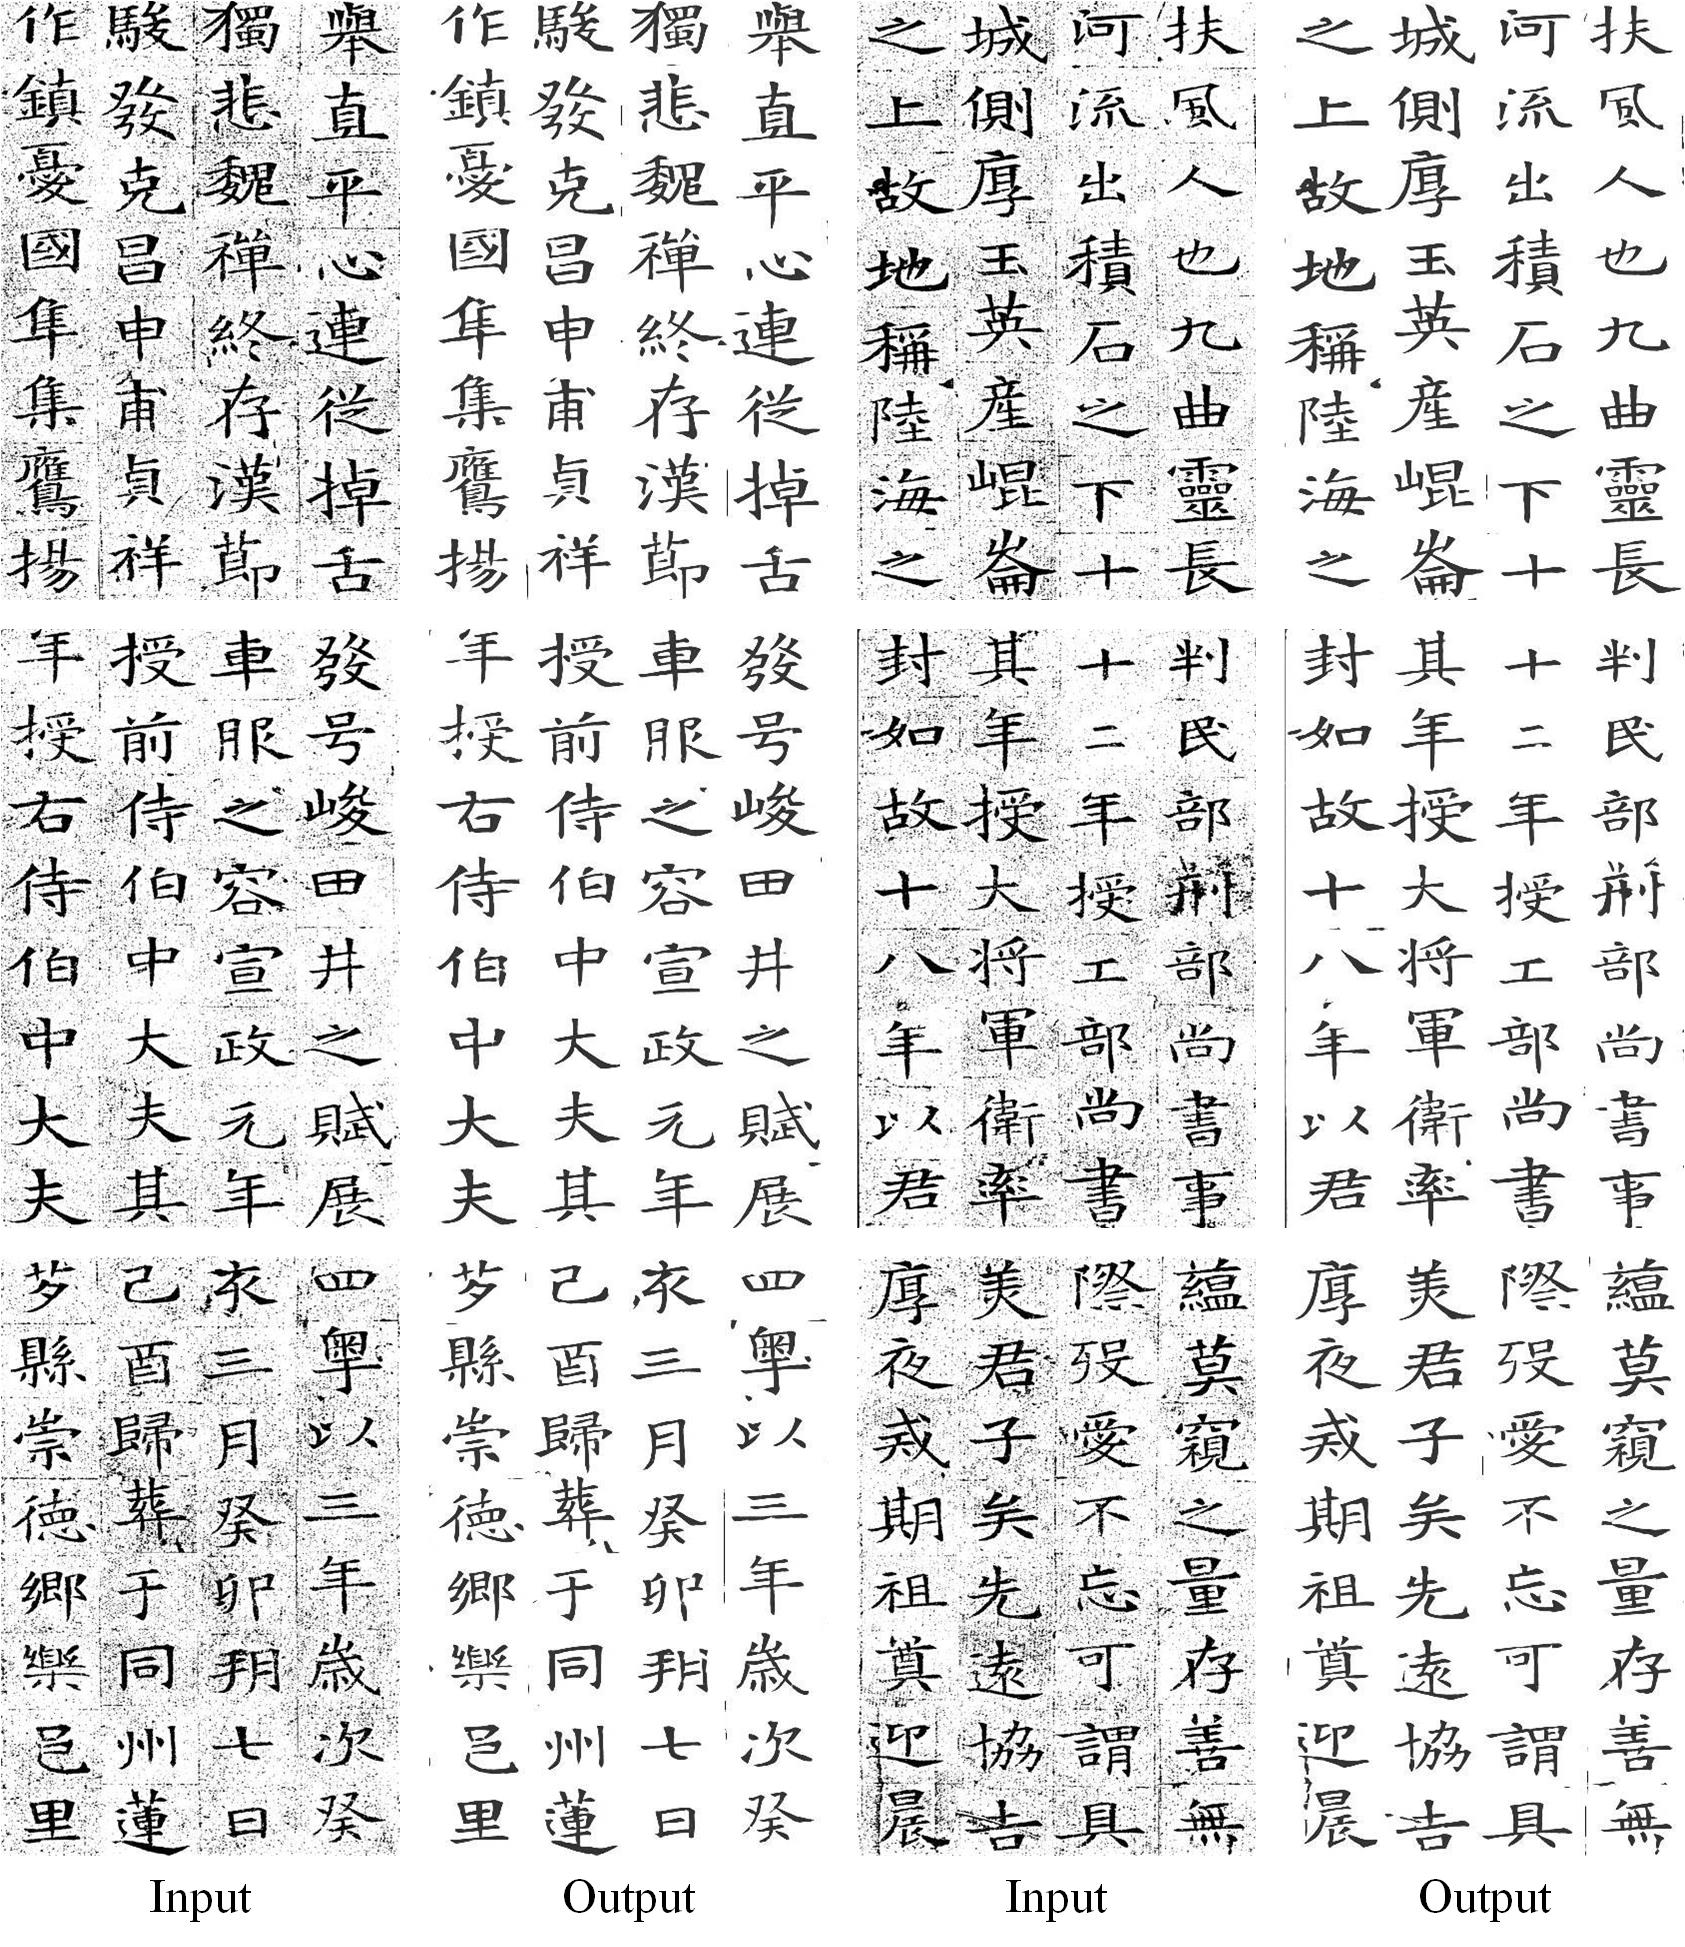 舉直平心連從掉舌
獨悲魏禪終存漢節
駿發克昌申甫貞祥
作鎮憂國隼集鷹揚
舉直平心連從掉舌
獨悲魏禪終存漢節
駿發克昌申甫貞祥
作鎮憂國隼集鷹揚
扶風人也九曲靈長
河流出積石之下十
城側厚玉英産崐崙
之上故地稱陸海之
扶風人也九曲靈長
河流出積石之下十
城側厚玉英産崐崙
之上故地稱陸海之
發号峻田井之賦展
車服之容宣政元年
授前侍伯中大夫其
年授右侍伯中大夫
發号峻田井之賦展
車服之容宣政元年
授前侍伯中大夫其
年授右侍伯中大夫
判民部荆部尚書事
十二年授工部尚書
其年授大将軍衛率
封如故十八年以君
判民部荆部尚書事
十二年授工部尚書
其年授大将軍衛率
封如故十八年以君
四粤以三年歲次癸
亥三月癸卯朔七日
己酉歸葬于同州蓮
芍縣崇德鄉樂邑里
四粤以三年歲次癸
亥三月癸卯朔七日
己酉歸葬于同州蓮
芍縣崇德鄉樂邑里
蘊莫窺之量存善無
際歿愛不忘可謂具
美君子矣先遠協吉
厚夜戒期祖奠迎晨
蘊莫窺之量存善無
際歿愛不忘可謂具
美君子矣先遠協吉
厚夜戒期祖奠迎晨
Input
Output
Input
Output